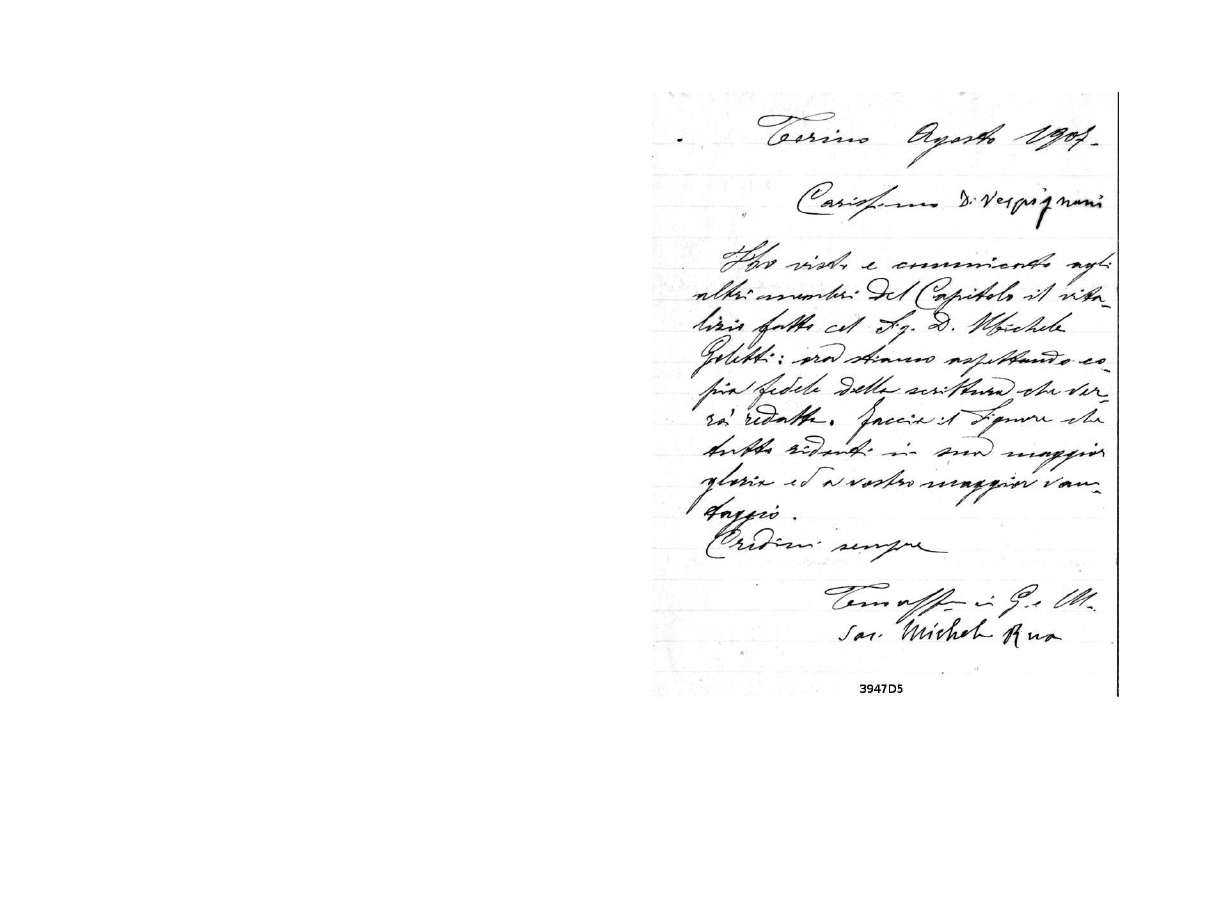 Torino Agosto 1907-
Carissimo D. Vespignani
Ho visto e comunicato agli
altri membri del Capitolo il vita-
lizio fatto col Sig. D. Michele
Goletti: ora stiamo aspettando co-
pia fedele della scrittura che ver-
rà redatta. Faccia il Signore che
tutto ridondi in sua maggior
gloria ed a vostro maggior van-
taggio.
Credimi sempre
Tuo aff in G. e M.
Sac. Michele Rua
3947D5